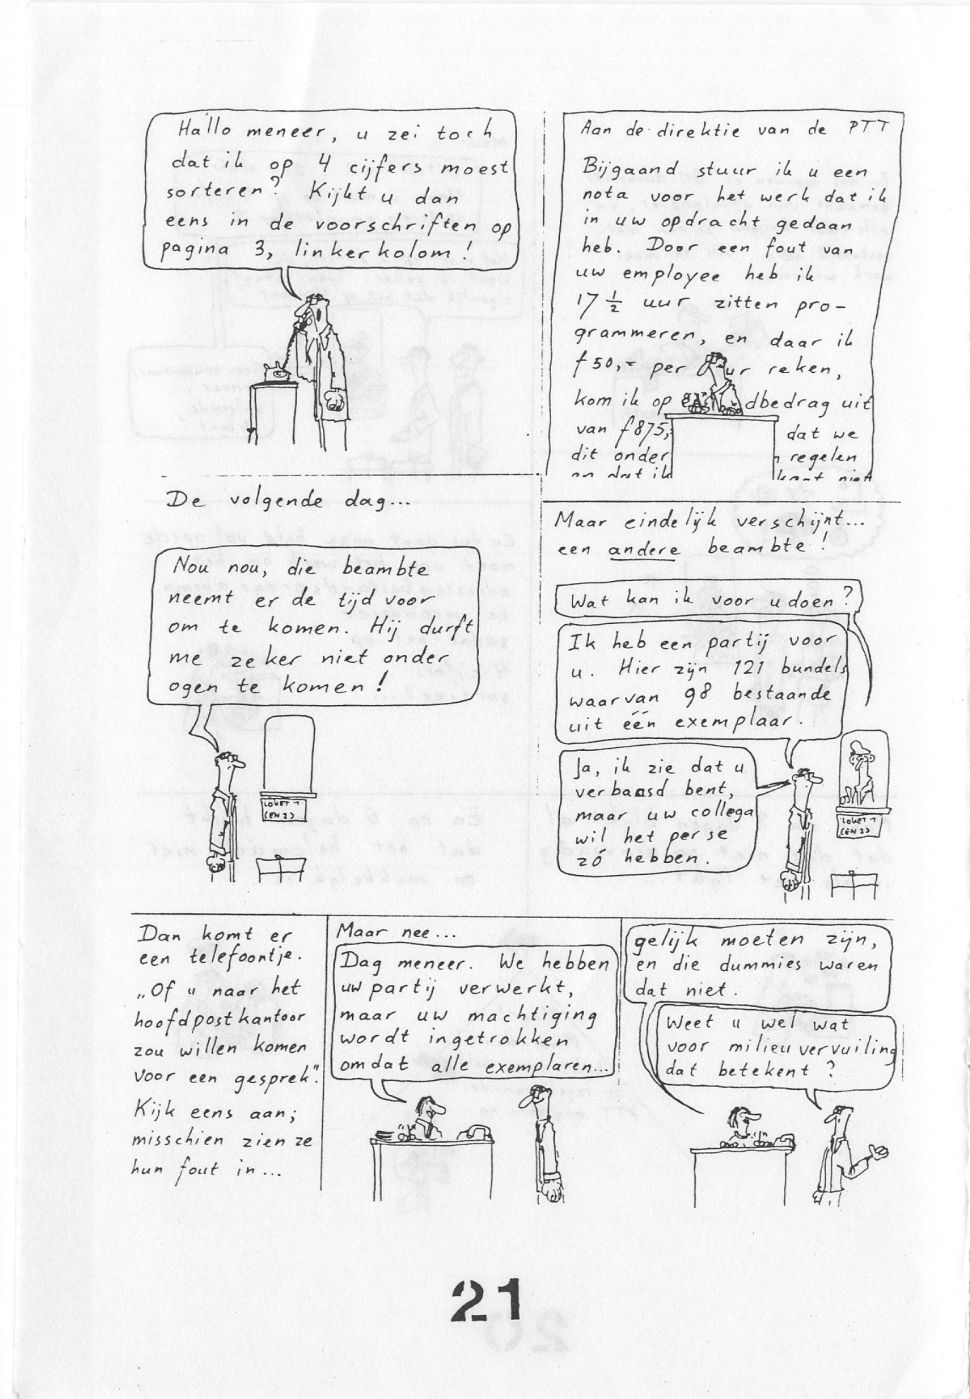 Hallo meneer, u zei toch
dat ik op 4 cijfers moest
sorteren? Kijkt u dan
eens in de voorschriften op
pagina 3, linkerkolom!
Aan de direktie van de PTT
Bijgaand stuur ik u een
nota voor het werk dat ik
in uw opdracht gedaan
heb. Door een fout van
uw employee heb ik
17 ½ uur zitten pro-
grammeren, en daar ik
f 50,- per uur reken,
kom ik op dbedrag uit
van f 875,- dat we
dit onder regelen
en dat ik niet
De volgende dag...
Nou nou, die beambte
neemt er de tijd voor
om te komen. Hij durft
me zeker niet onder
ogen te komen!
LOKET 1
(EN 2)
Maar eindelijk verschijnt...
een andere beambte!
Wat kan ik voor u doen?
Ik heb een partij voor
u. Hier zijn 121 bundels
waarvan 98 bestaande
uit één exemplaar.
Ja, ik zie dat u
verbaasd bent,
maar uw collega
wil het per se
zó hebben.
LOKET 1
(EN 2)
Dan komt er
een telefoontje.
„Of u naar het
hoofdpostkantoor
zou willen komen
voor een gesprek".
Kijk eens aan;
misschien zien ze
hun fout in...
Maar nee...
Dag meneer. We hebben
uw partij verwerkt,
maar uw machtiging
wordt ingetrokken
omdat alle exemplaren...
gelijk moeten zijn,
en die dummies waren
dat niet.
Weet u wel wat
voor milieuvervuiling
dat betekent?
21